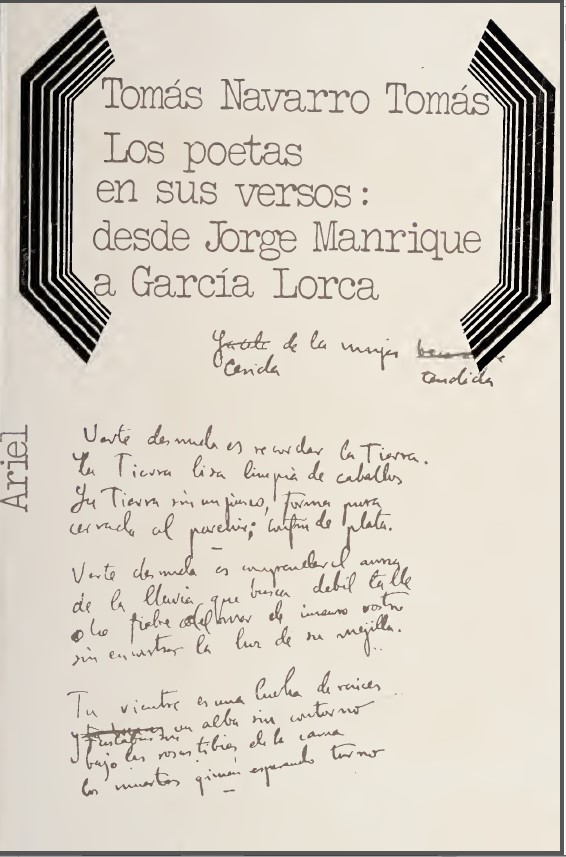 Tomás Navarro Tomás
Los poetas
en sus versos:
desde Jorge Manrique
a García Lorca
de la mujer
Casida tendida
Ariel
Verte desnuda es recordar la Tierra.
La Tierra lisa limpia de caballos
La Tierra sin un junco, forma pura
cerrada al porvenir; confin de plata.
Verte desnuda es comprender el ansia
de la lluvia que busca debil talle
o la fiebre del mar de inmenso rostro
sin encontrar la luz de su mejilla.
Tu vientre es una lucha de raices
tus labios son un alba sin contorno
bajo las rosas tibias de la cama
los muertos gimen esperando turno